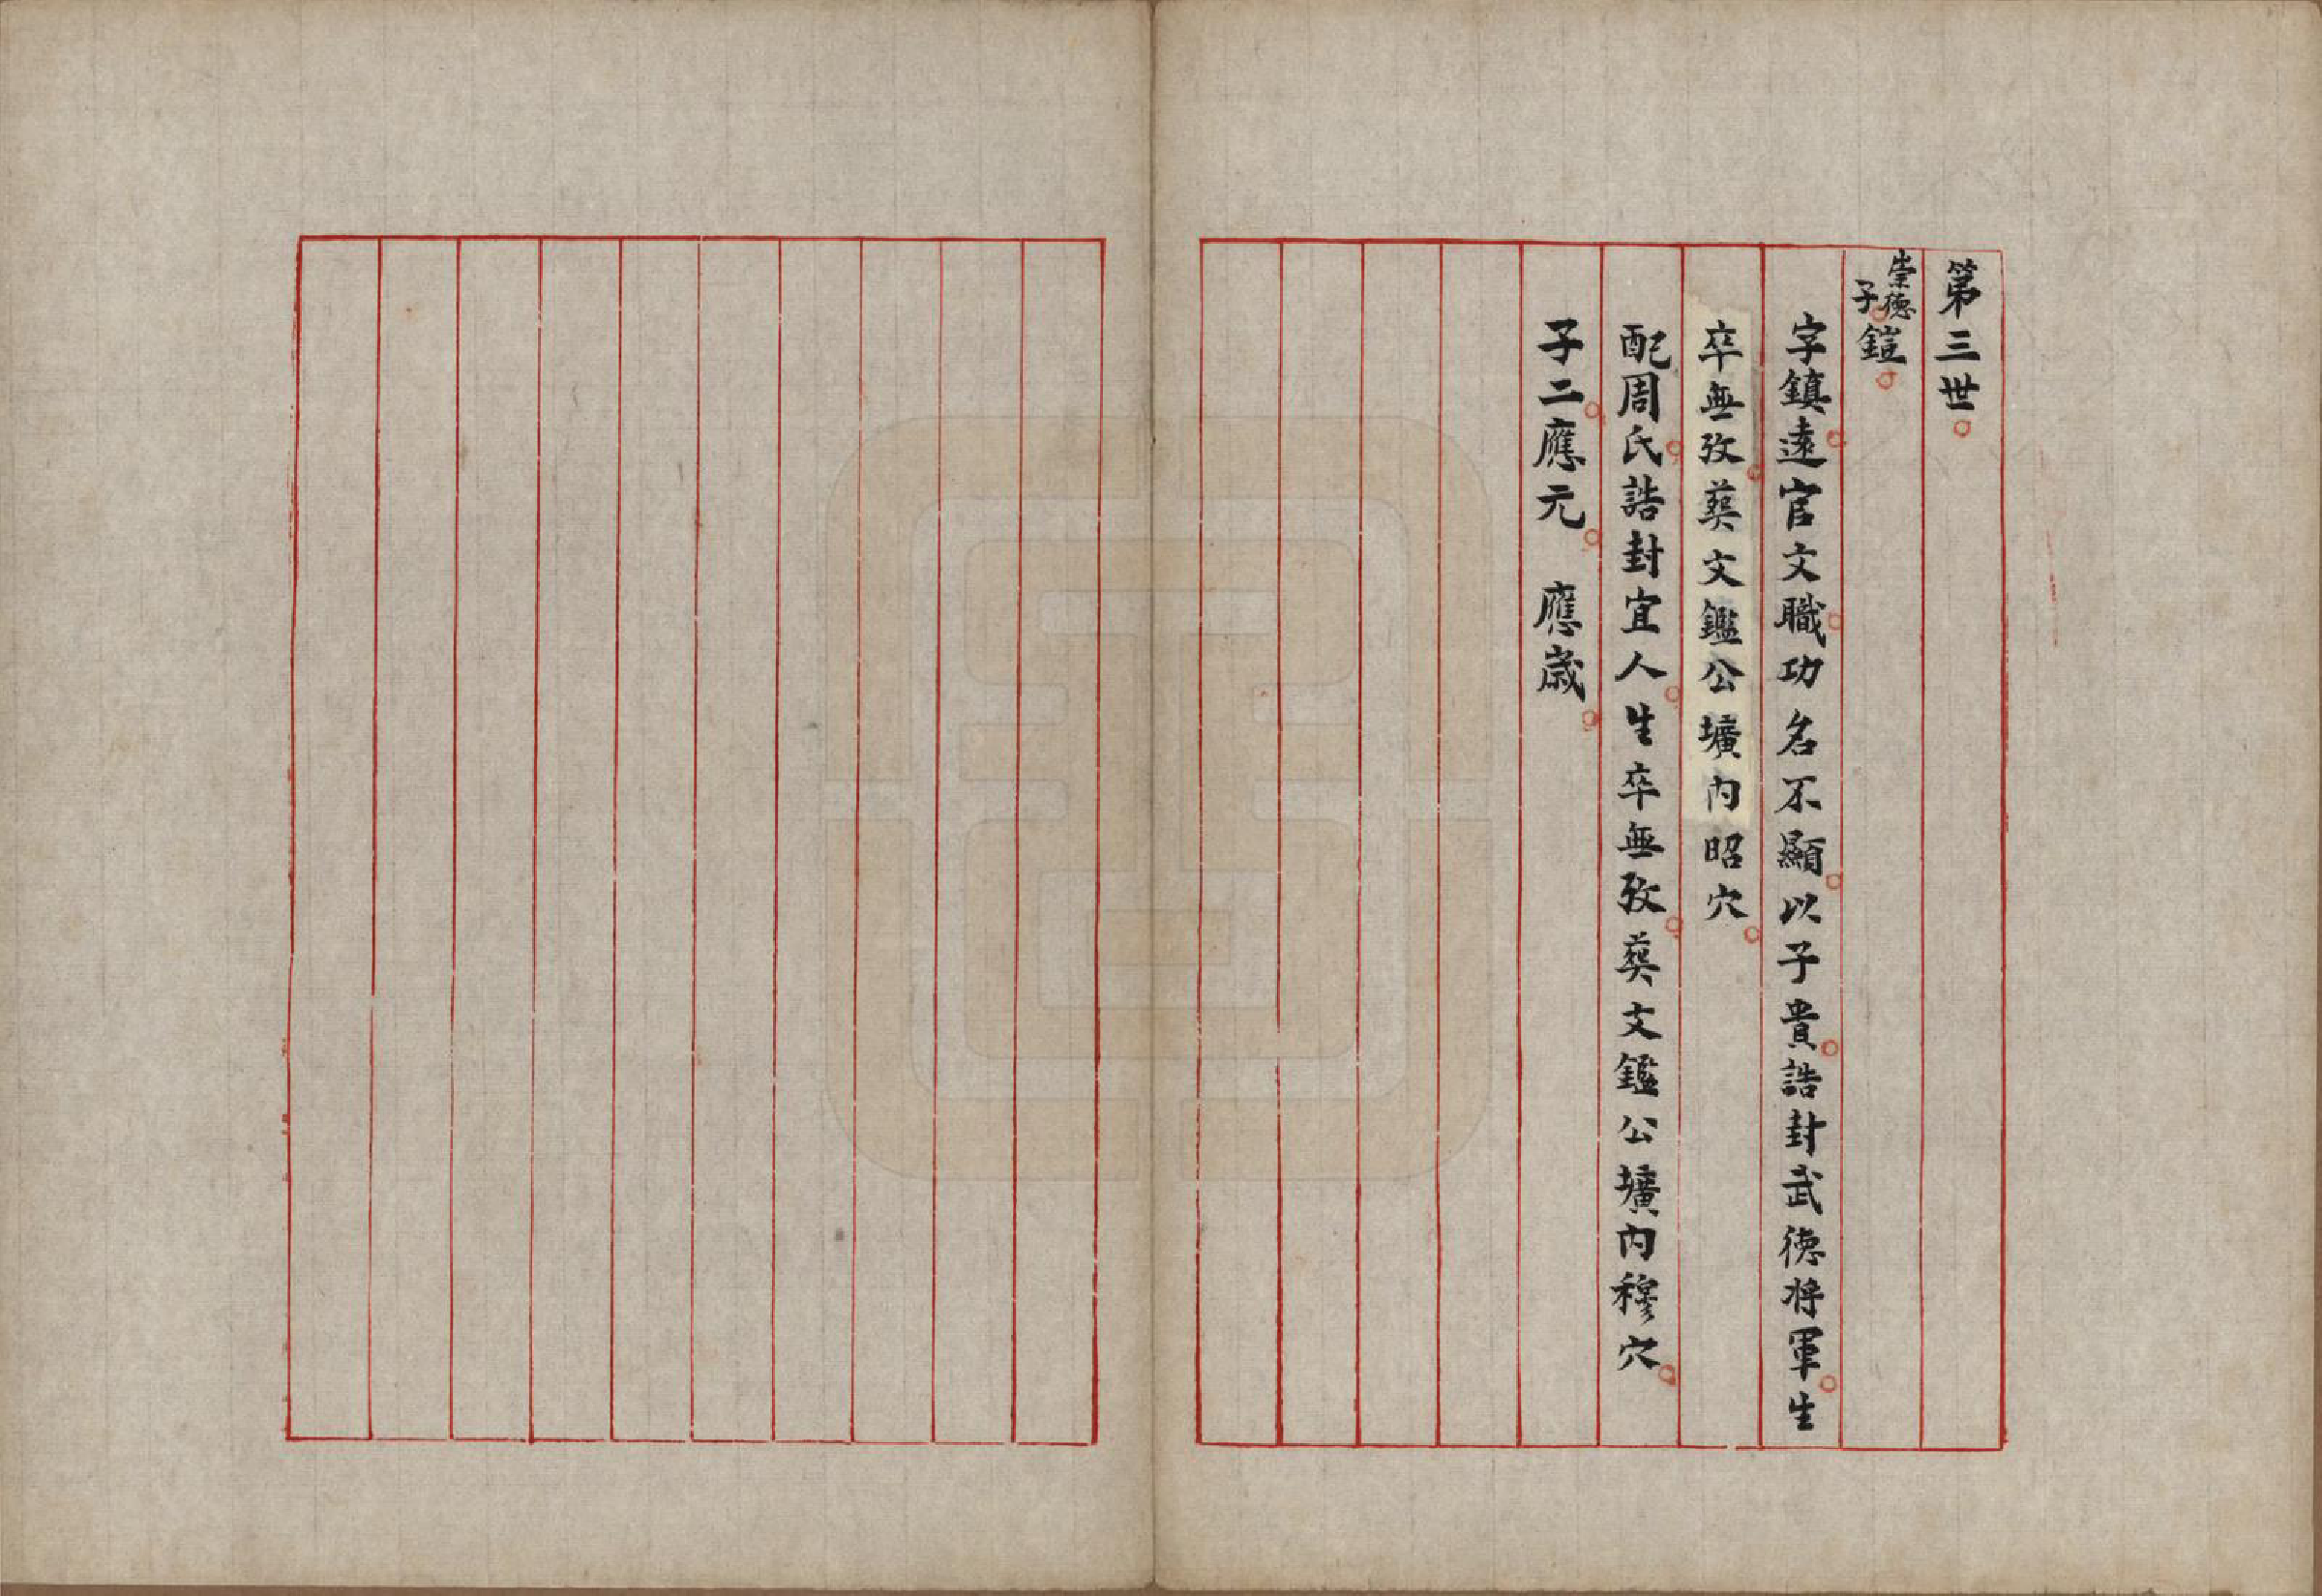 第三世
崇德子鎧
字鎮遠官文職功名不顯以子貴誥封武德將軍生
卒無攷葬文鑑公壙內昭穴
配周氏誥封宜人生卒無攷葬文鑑公壙內穆穴
子二應元　應歲